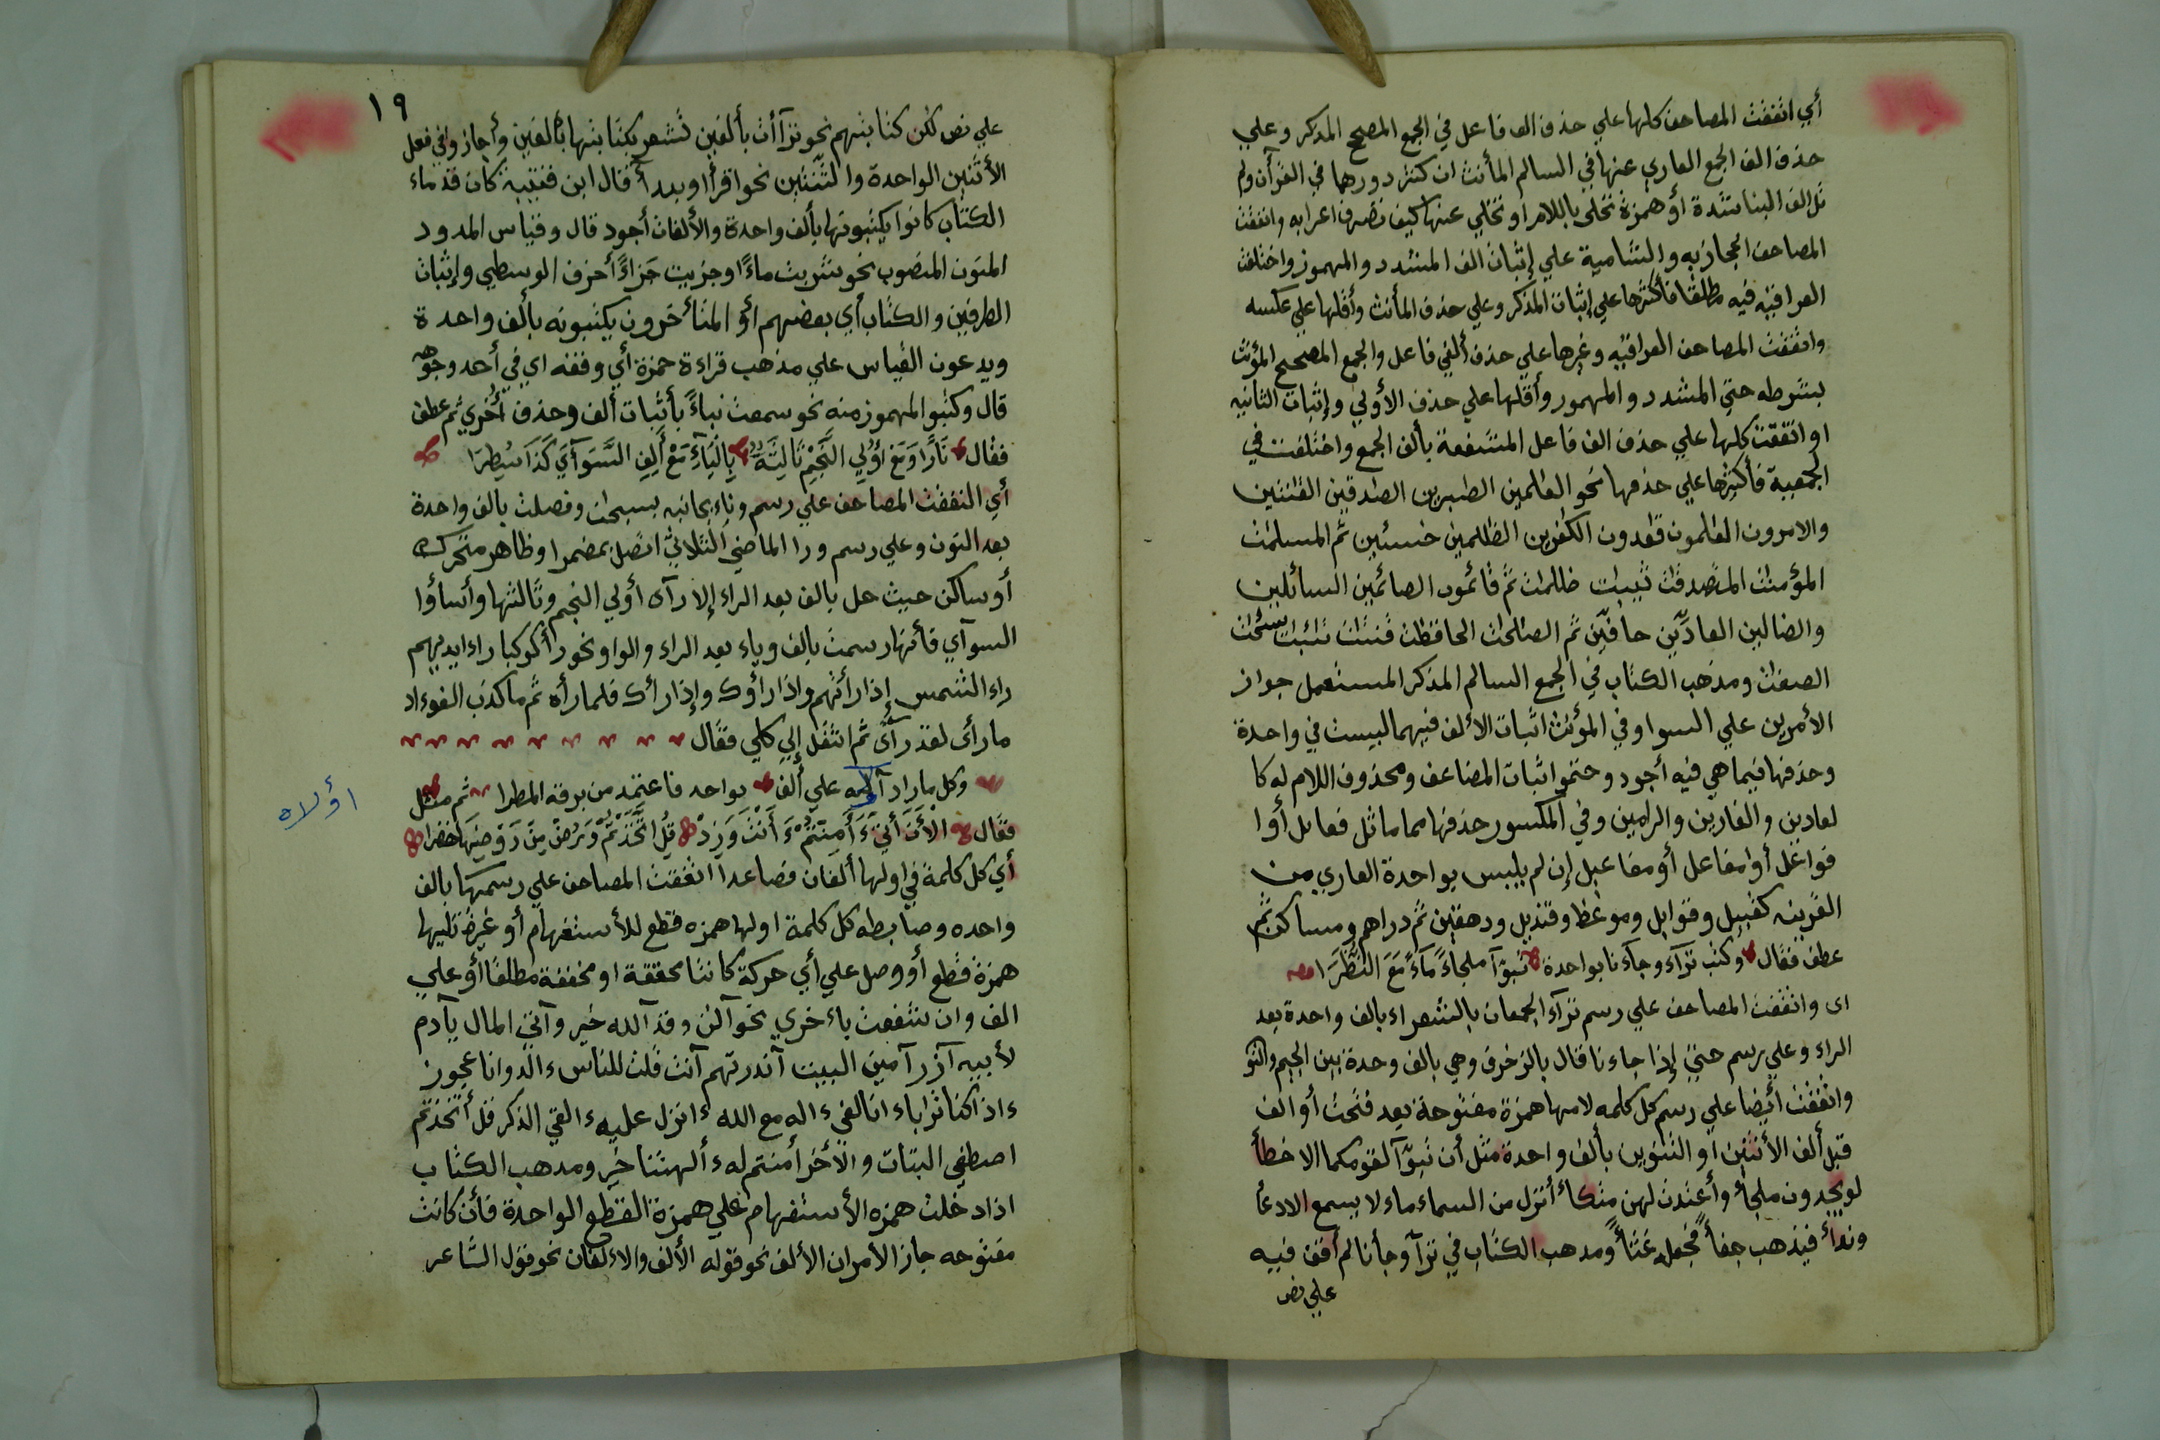 أي اتفقت المصاحف كلها علي حذف الف فاعل في الجمع المصحح المذكر وعلي
حذف الف الجمع العاري عنها في السالم المأنث ان كثر دورها في القرآن ولم
تل الف البنا شدة أو همزة تحلى باللام او تخلي عنها كيف تصرف اعرابه واتفقت
المصاحف الحجازيه والشامية علي إثبات الف المشدد والمهموز واختلفت
العراقيه فيه مطلقا فأكثرها علي إثبات المذكر وعلي حذف المأنث وأقلها علي عكسه
واتفقت المصاحف العراقيه وغيرها علي حذف ألفي فاعل والجمع المصحح المؤنث
بشرطه حتي المشدد والمهموز وأقلها علي حذف الأولي وإثبات الثانيه
او اتفقت كلها علي حذف الف فاعل المتشفعة بألف الجمع واختلفت في
الجمعية فأكثرها علي حذفها نحو العلمين الصبرين الصدقين القنتين
والامرون العلمون قعدون الكفرين الظلمين خسئين ثم المسلمت
المؤمنت المتصدقت ثيبت ظلمت ثم قائمون الصائمين السائلين
والضالين العادّين حافّين ثم الصلحت الحفظت قنتت تئبت سئحت
الصفت ومذهب الكتاب في الجمع السالم المذكر المستعمل جواز
الأمرين علي السوا وفي المؤنث اثبات الألف فيهما ليست في واحدة
وحذفها فيما هي فيه أجود وحتموا ثبات المضاعف ومحذوف اللام له كا
لعادين والغازين والرامين وفي المكسور حذفها مما ماثل فعايل أوا
فواعل أوا مفاعل أو مفاعيل إن لم يلبس بواحدة العاري من
القرينه كقبيل وقوابل وموعظ وقنديل ودهقين ثم دراهم ومساكن ثم
عطف فقال وكتب تراء وجآءنا بواحدة تبوّآ ملجاءً ماءً مَعَ النُّظَرَا
اى واتفقت المصاحف علي رسم تراء الجمعان بالشعراء بالف واحدة بعد
الراء وعلي رسم حتي إذا جاءنا قال بالزخرف وهي بالف وحدة بين الجيم والنو
واتفقت أيضا علي رسم كل كلمه لامها همزة مفتوحة بعد فتحت أو الف
قبل ألف الأثنين او التنوين بألف واحدة مثل أن تبوّآ لقومكما الا خطأ
لو يجدون ملجأ وأعتدت لهن متكأ أنزل من السماء ماء لا يسمع الا دعأ
وندأ فيذهب جفأ فجعله غثأ ومدهب الكتاب في ترآ وجأنا لم أقف فيه
علي نص
١٩
علي نص لكن كتابتهم نحو ترآأت بألفين تشعر بكتابتها بألفين وأجازوا في فعل
الأثنين الواحدة والثنتين نحو اقرأا وبدأ قال ابن قتيبة كان قدماء
الكتاب كانوا يكتبونها بألف واحدة والألفان أجود قال وقياس المدود
المنون المنصوب نحو شربت ماءًا وجزيت جزاءًا حرف الوسطي وإثبات
الطرفين والكتاب أي بعضهم أو المتأخرون يكتبونه بألف واحدة
ويدعون القياس علي مذهب قراءة حمزة أي وقفه اي في أحد وجوهه
قال وكتبو المهموز منه نحو سمعت نباءً بأثبات ألف وحذف أخري ثم عطف
فقال نَارًا وَمَعْ أُوْلِي النَّجْمِ ثَالِثَةٌ بِالْيَاءِ مَعْ أَلِفِ السَّوَآيَ كَذَا سُطِرَا
أي اتفقت المصاحف علي رسم وناء بجانبه بسبحن وفصلت بالف واحدة
بعد النون وعلي رسم ورا الماضي الثلاثي اتصل بمضمر او ظاهر متحرك
أو ساكن حيث حل بالف بعد الراء إلا رآى أولي النجم وثالثها وأساؤا
السوآي فأنها رسمت بالف وياء بعد الراء والواو نحو رأ كوكبا راء ايديهم
راء الشمس إذا رأتهم واذا رأوك وإذا رأك فلما رأه ثم ما كذب الفوءاد
ما رأى لقد رأى ثم انتقل إلي كلي فقال
وكل ما زاد اولاه علي ألف بواحد فاعتمد من برقه المطرا ثم مثل
فقال الْأَنَ أَتي ءَأَمِنْتُمْ ءَأَنْتَ وَزِدْ قُلِ اتَّخَذْتُمْ وَرُضْ مِنْ رَوْضِهَا خَضِرَا
أي كل كلمة في اولها ألفان فصاعدا اتفقت المصاحف علي رسمها بالف
واحده وضابطه كل كلمة اولها همزه قطع للأستفهام أو غيره تليها
همزة قطع أو وصل علي أي حركة كانتا محققة او مخففة مطلقا أو علي
الف وان شفعت باءخري نحو آلن وقد آلله خير وآتي المال يآدم
لأبيه آزر آمين البيت آنذرتهم آنت قلت للناس ءالد وانا عجوز
ءاذا كنا ترابا ءانا لفي ءاله مع الله ءانزل عليه ءالقي الذكر قل أتخذتم
اصطفي البنات والآخر أمنتم له ءألهتنا خير ومدهب الكتاب
اذا دخلت همزه الأستفهام علي همزة القطع الواحدة فأن كانت
مفتوحه جاز الأمران الألف نحو قوله الألف والاءلفان نحو قول الشاعر
اؤلاه